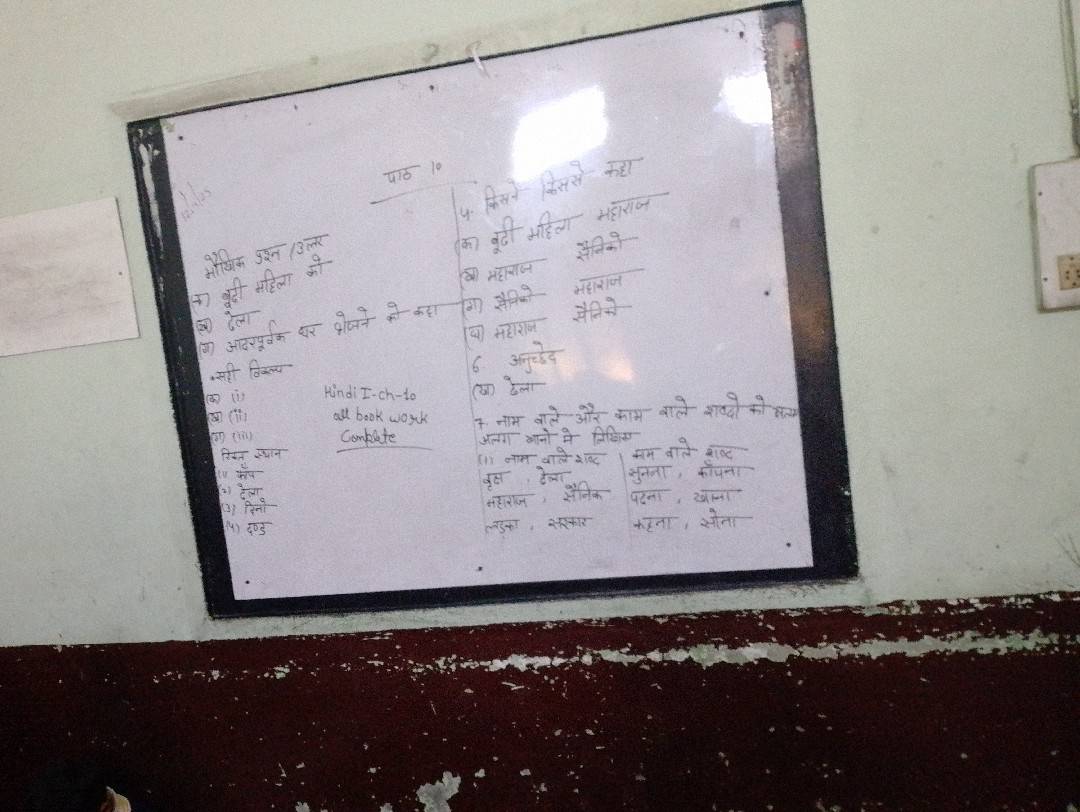 पाठ 10
मौखिक प्रश्न / उत्तर
(क) बूढ़ी महिला को
(ख) ढेला
(ग) आदरपूर्वक घर भेजने को कहा
सही विकल्प
(क) (i)
(ख) (ii)
(ग) (iii)
रिक्त स्थान
(1) काँप
(2) ढेला
(3) दिनो
(4) दण्ड
Hindi I-ch-10
all book work
Complete
5. किसने किससे कहा
(क) बूढी महिला महाराज
(ख) महाराज सैनिको
(ग) सैनिको महाराज
(घ) महाराज सैनिको
6 अनुच्छेद
(ख) ढेला
7 नाम वाले और काम वाले शब्दो को अलग
अलग खानो मे लिखिए
(1) नाम वाले शब्द काम वाले शब्द
वृक्ष, ढेला सुनना, काँपना
महाराज, सैनिक पढना, खाना
लड़का, सरकार कहना, सोना